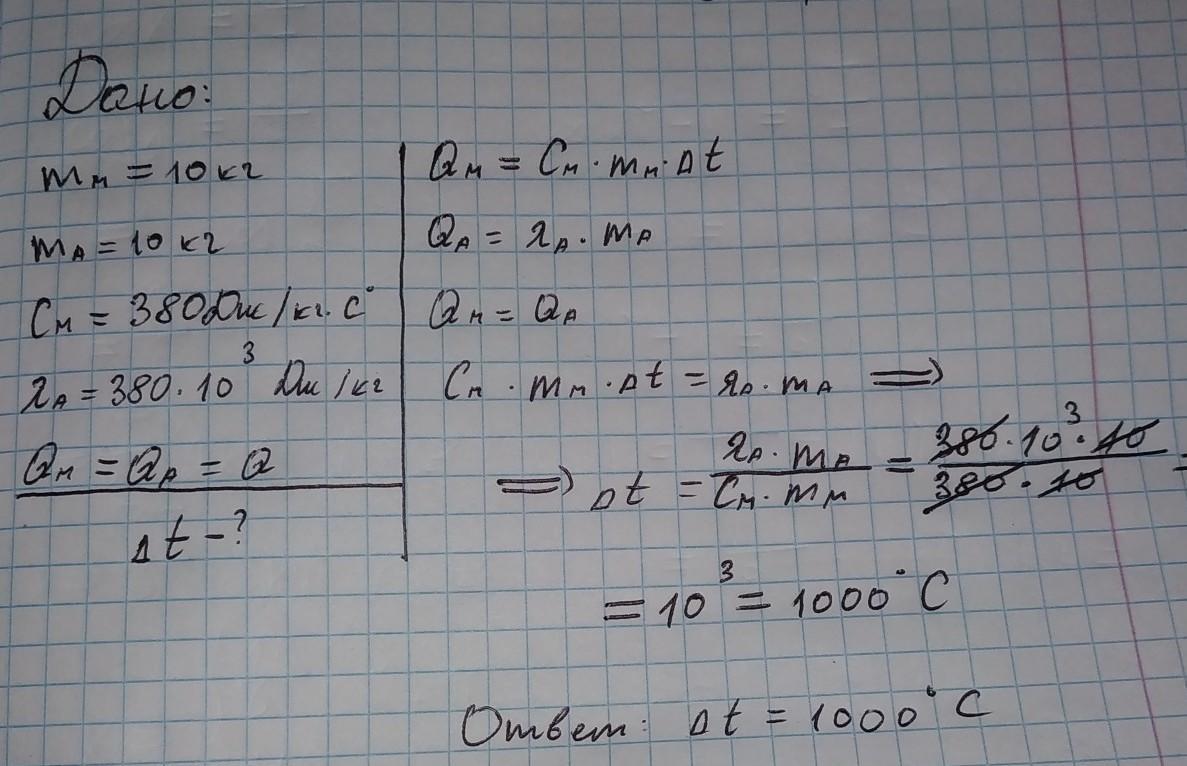 Дано:
mм = 10 кг
mА = 10 кг
Cм = 380 Дж/кг·С°
λА = 380·10³ Дж/кг
Qм = QА = Q
Δt – ?
Qм = Cм · mм · Δt
QА = λА · mА
Qм = QА
Cм · mм · Δt = λА · mА ⟹
⟹ Δt = λА · mА / Cм · mм = 380·10³·10 / 380·10 =
= 10³ = 1000°C
Ответ: Δt = 1000°C